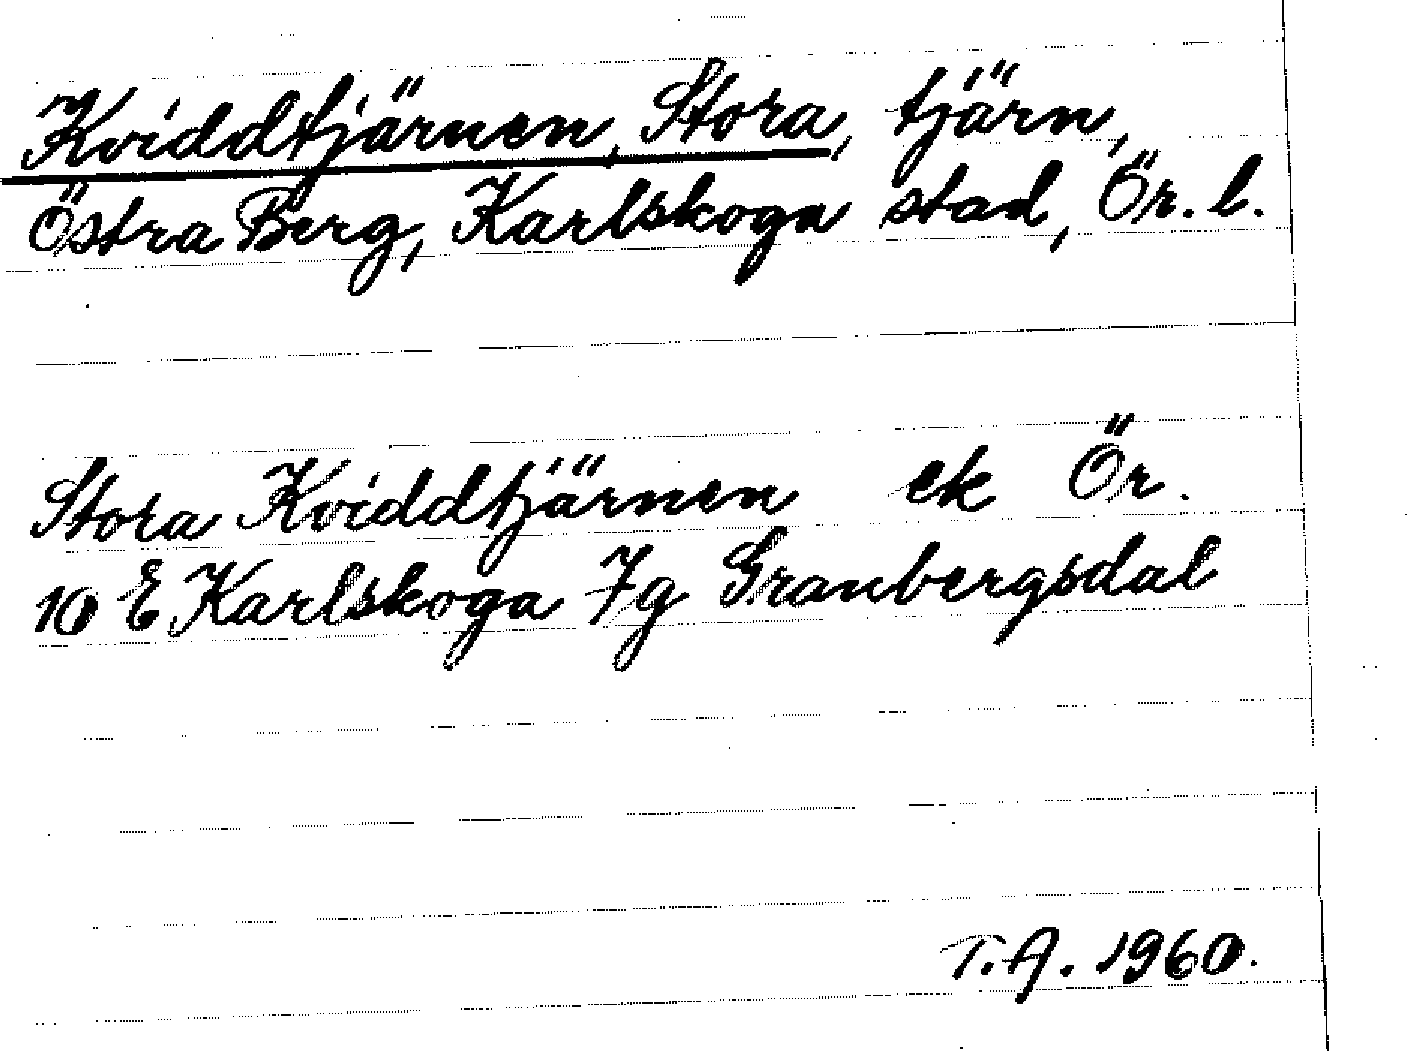 Kviddtjärnen, Stora, tjärn,
Östra Berg, Karlskoga stad, Ör. l.
Stora Kviddtjärnen ek Ör.
10 E Karlskoga 7g Granbergsdal
T.A. 1960.